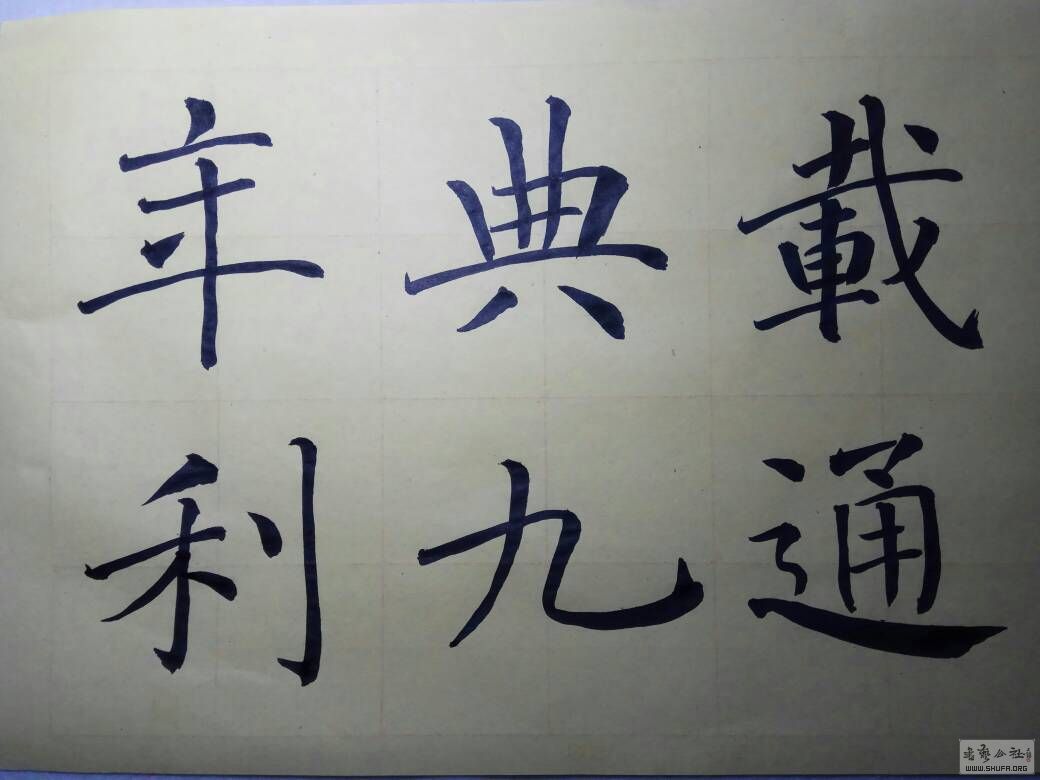 載通
典九
年利
书艺公社
WWW.SHUFA.ORG